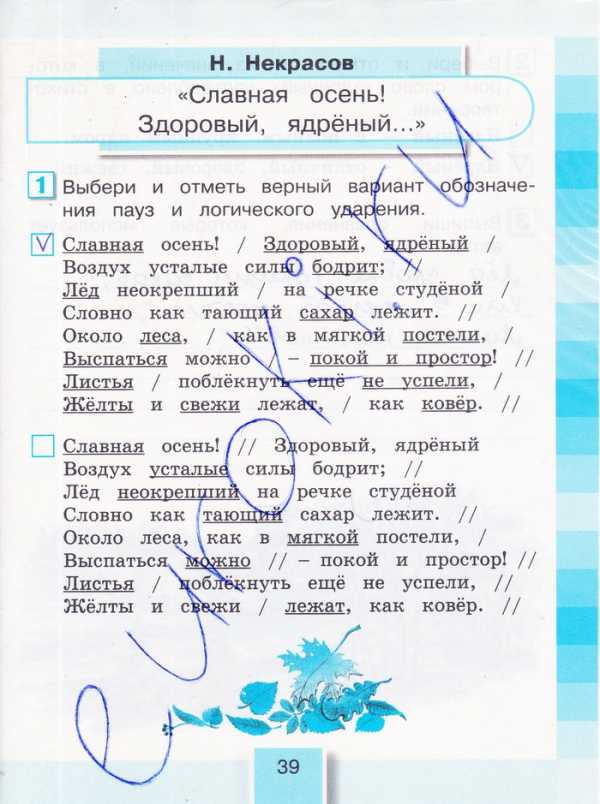 Н. Некрасов
«Славная осень!
Здоровый, ядрёный...»
1 Выбери и отметь верный вариант обозначе-
ния пауз и логического ударения.
V Славная осень! / Здоровый, ядрёный /
Воздух усталые силы бодрит; //
Лёд неокрепший / на речке студёной /
Словно как тающий сахар лежит. //
Около леса, / как в мягкой постели, /
Выспаться можно / – покой и простор! //
Листья / поблёкнуть ещё не успели, /
Жёлты и свежи лежат, / как ковёр. //
Славная осень! // Здоровый, ядрёный
Воздух усталые силы бодрит; //
Лёд неокрепший на речке студёной
Словно как тающий сахар лежит. //
Около леса, как в мягкой постели, /
Выспаться можно // – покой и простор! //
Листья / поблёкнуть ещё не успели, //
Жёлты и свежи / лежат, как ковёр. //
39